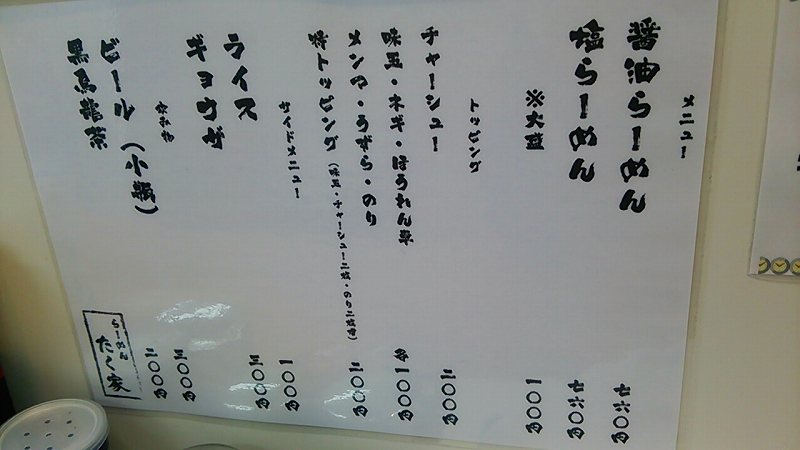 メニュー
醤油らーめん 七六〇円
塩らーめん 七六〇円
※大盛 一〇〇円
トッピング
チャーシュー 二〇〇円
味玉・ネギ・ほうれん草 各一〇〇円
メンマ・うずら・のり
特トッピング 三〇〇円
サイドメニュー
ライス 一〇〇円
ギョウザ 三〇〇円
ビール(小瓶) 三〇〇円
黒烏龍茶 二〇〇円